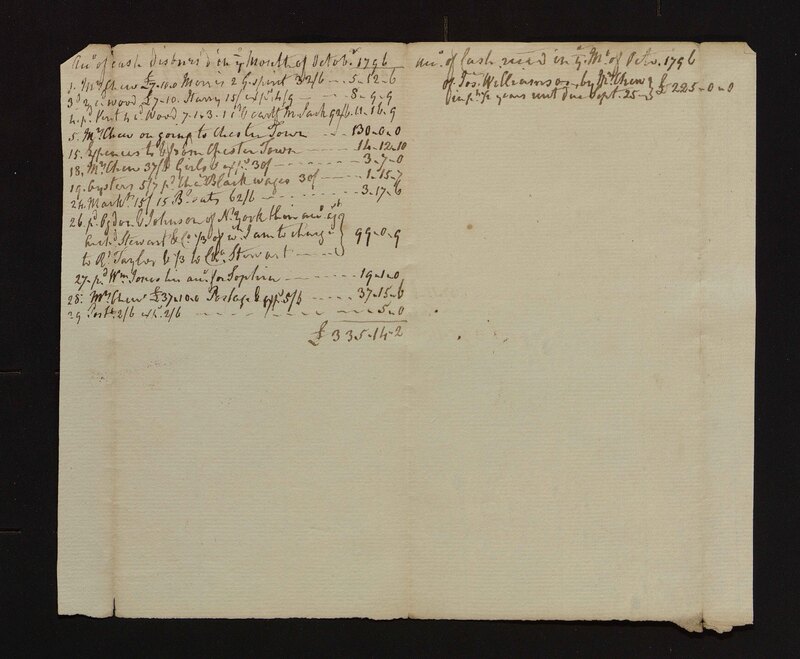 Acct. of Cash disburs'd in ye Month of Octobr. 1796
1. Mrs Chew £7-10.0 Morris 2 G. Spirit 32/6 -- 5-12-6
3d 2 c. wood £7-10. Harry 15/ exps. 4/9 --- 8-9-9
5. Mrs Chew on going to Chester Town -- 130-0-0
15. Expences to & from Chester Town --- 14-12-10
18. Mrs Chew 37/ Girls & exps. 30/ --- 3-7-0
19. Oysters 5/7 pd. the Black wages 30/ --- 1-15-7
24. Markt. 15/ 15 Bs. oats 62/6 --- 3-17-6
26. pd. Ogden & Johnson of N. York their acct. agt
Archd. Stewart & Co. 1/3 of wh. I am to charge
to Rt. Taylor & 1/3 to Stewart --- 99-0-9
27. pd Wm. Jones his acct. for Sophia --- 19-1-0
28. Mrs Chew £37-10-0 Postage & exps. 5/6 --- 37-15-6
29 Postr. 2/6 exps. 2/6 --- 5-0
£335-14-2
Acct. of Cash receivd in ye Mo. of Octo. 1796
of Jos. Williamson by Mr. Chew
in pt. 1/2 years rent due Sept. 25 £225-0-0